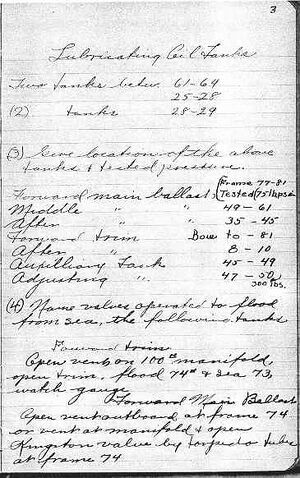 3
Lubricating Oil Tanks
Two tanks betw. 61-64
25-28
(2) tanks 28-29
(3) Give location of the above
tanks & tested pressure.
Forward main ballast Frame 77-81
Tested 75 lbs
Middle " " 49-61
After " " 35-45
Forward trim Bow to - 81
After " 8-10
Auxilliary Tank 45-49
Adjusting " 47-50
300 lbs.
(4) Name valves operated to flood
from sea, the following tanks
Forward trim
Open vent on 100# manifold,
open trim, flood 74# & sea 73,
watch gauge
Forward Main Ballast
Open vent outboard, at frame 74
or vent at manifold & open
Kingston valve by torpedo tube
at frame 74